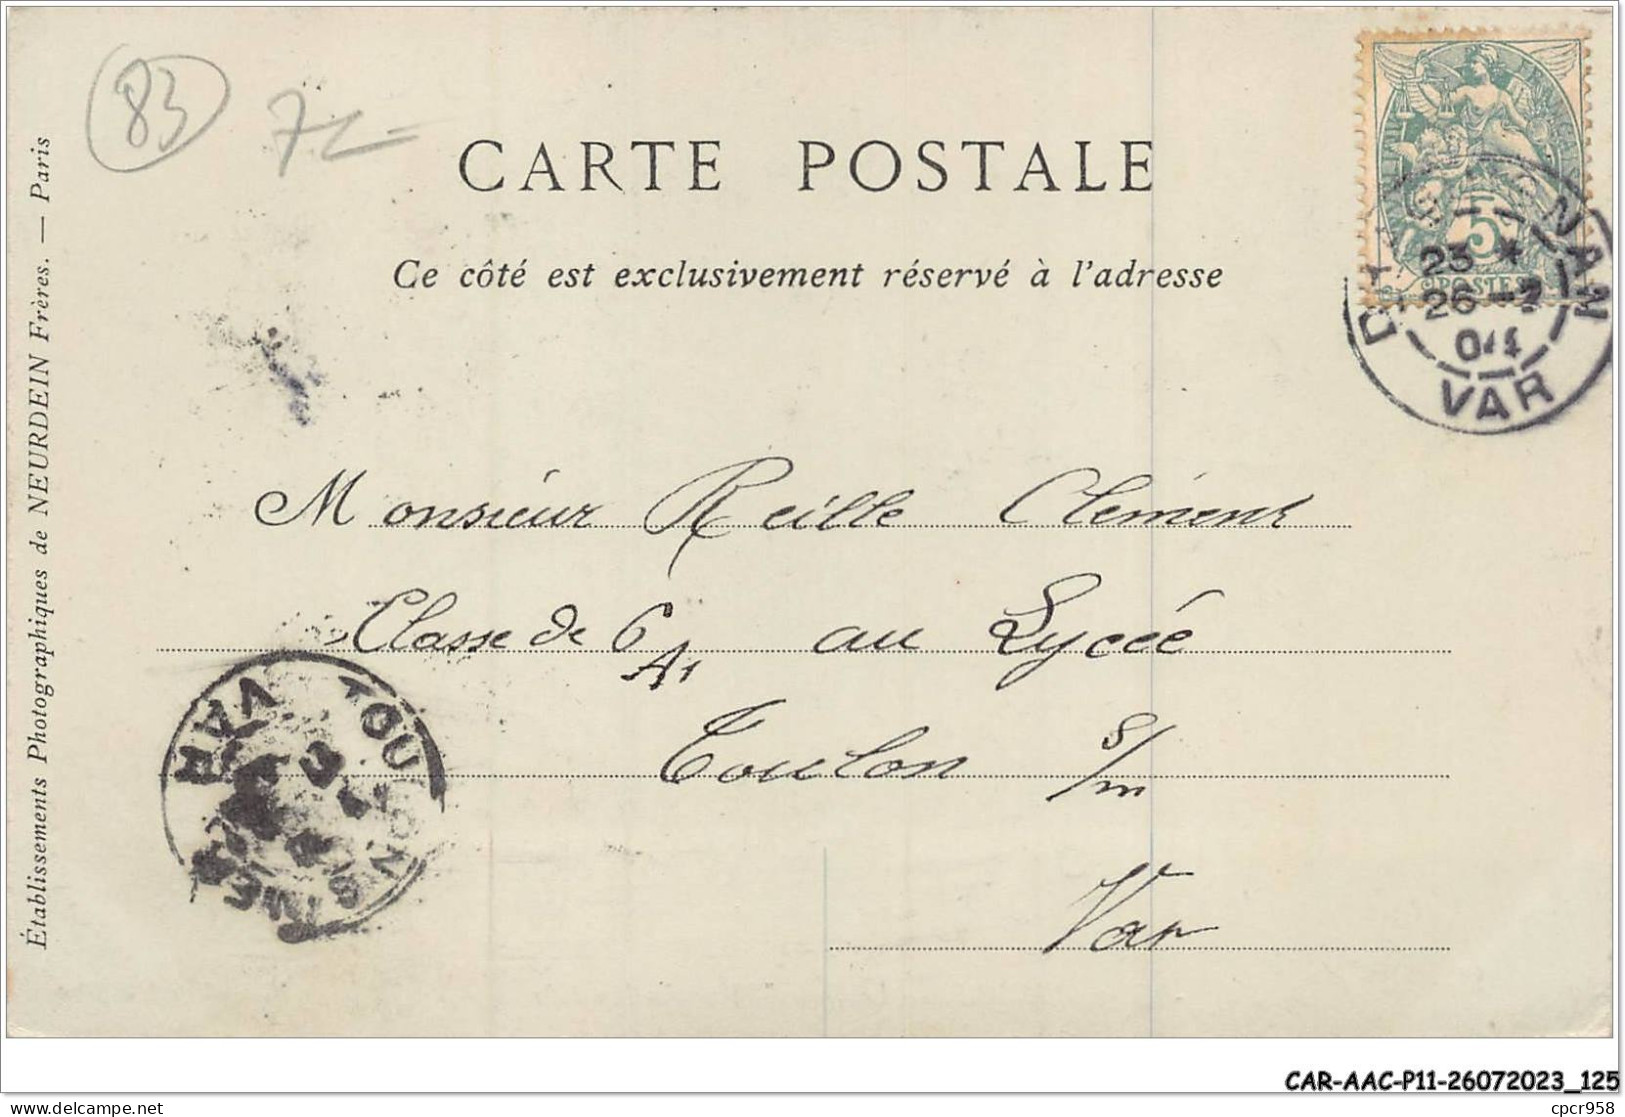 83
7
CARTE POSTALE
Ce côté est exclusivement réservé à l'adresse
5
POSTES
23 *
26 -
04
VAR
Monsieur Reille Clément
Classe de 6 A1 au Lycée
Toulon s/m
Var
TOULON S MER
VAR
Établissements Photographiques de NEURDEIN Frères. — Paris
CAR-AAC-P11-26072023_125
cpcr958